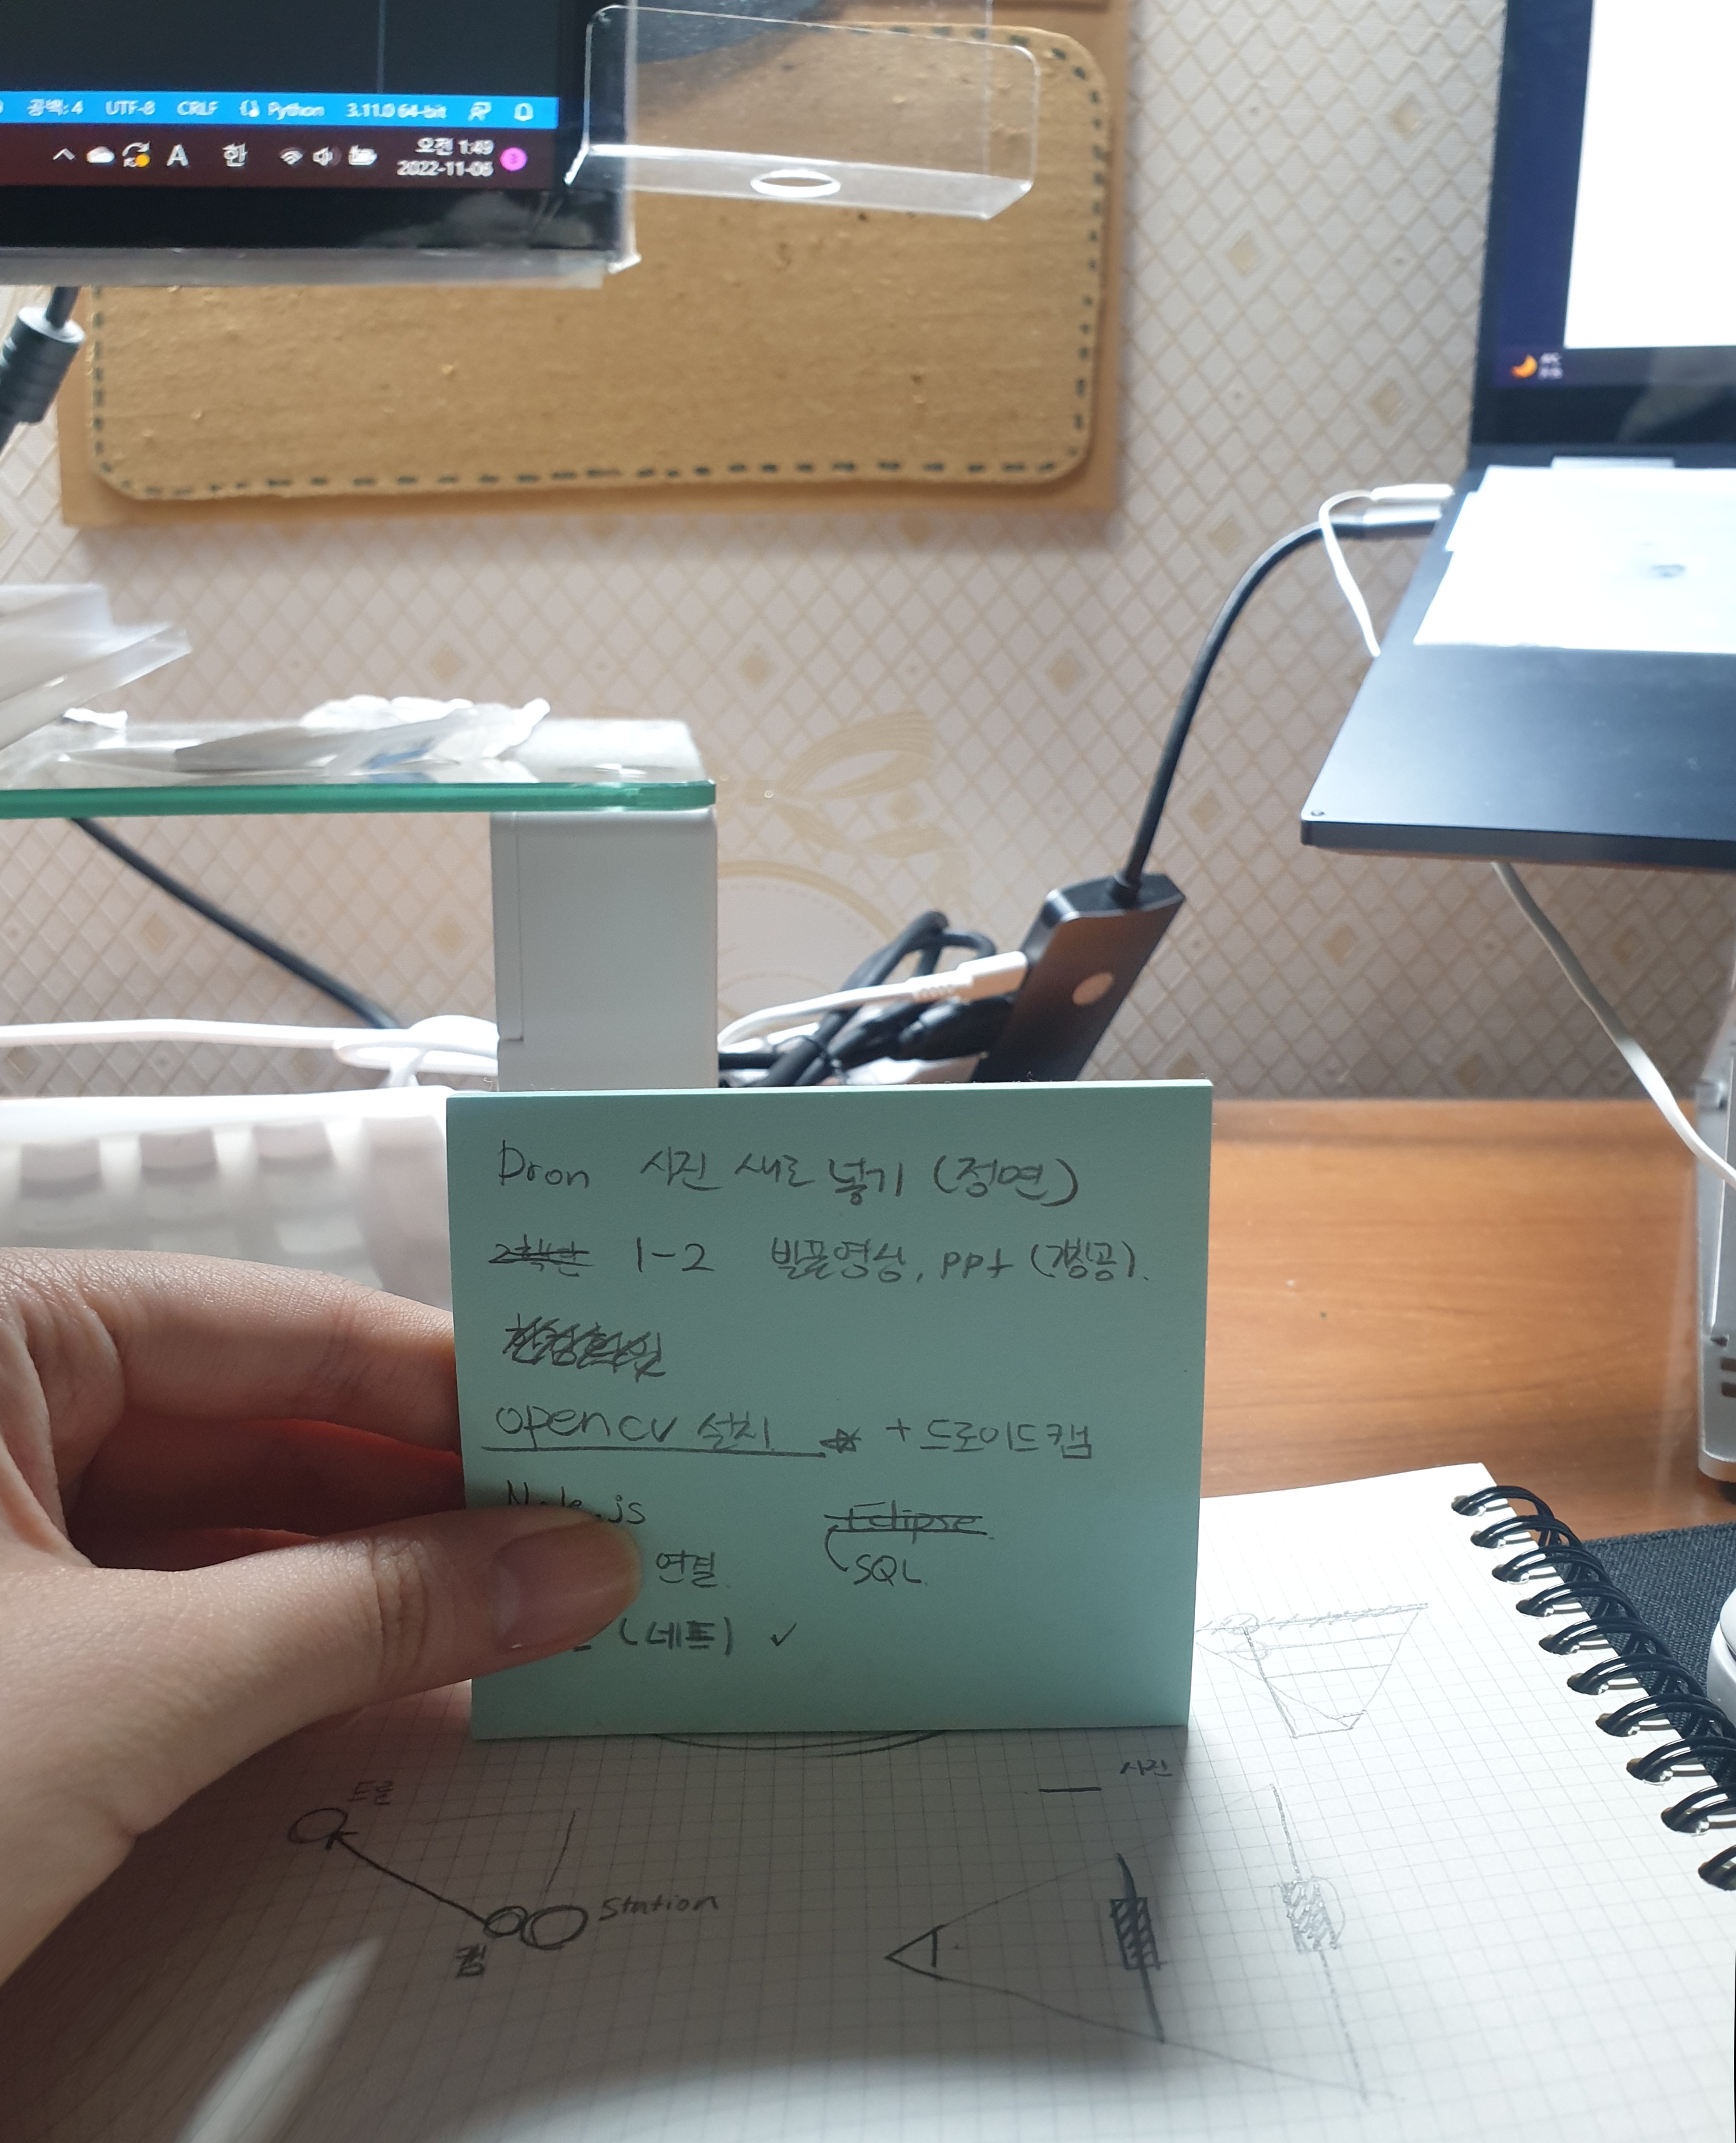 공백: 4 UTF-8 CRLF Python 3.11.0 64-bit
A 한 오전 1:49
2022-11-06
Dron 사진 새로 넣기 (정연)
1-2 빌플영상, ppt (갱공).
opencv 설치 + 드로이드캠
.js Eclipse
연결 SQL
(네트) ✓
사진
드론
Station
캠